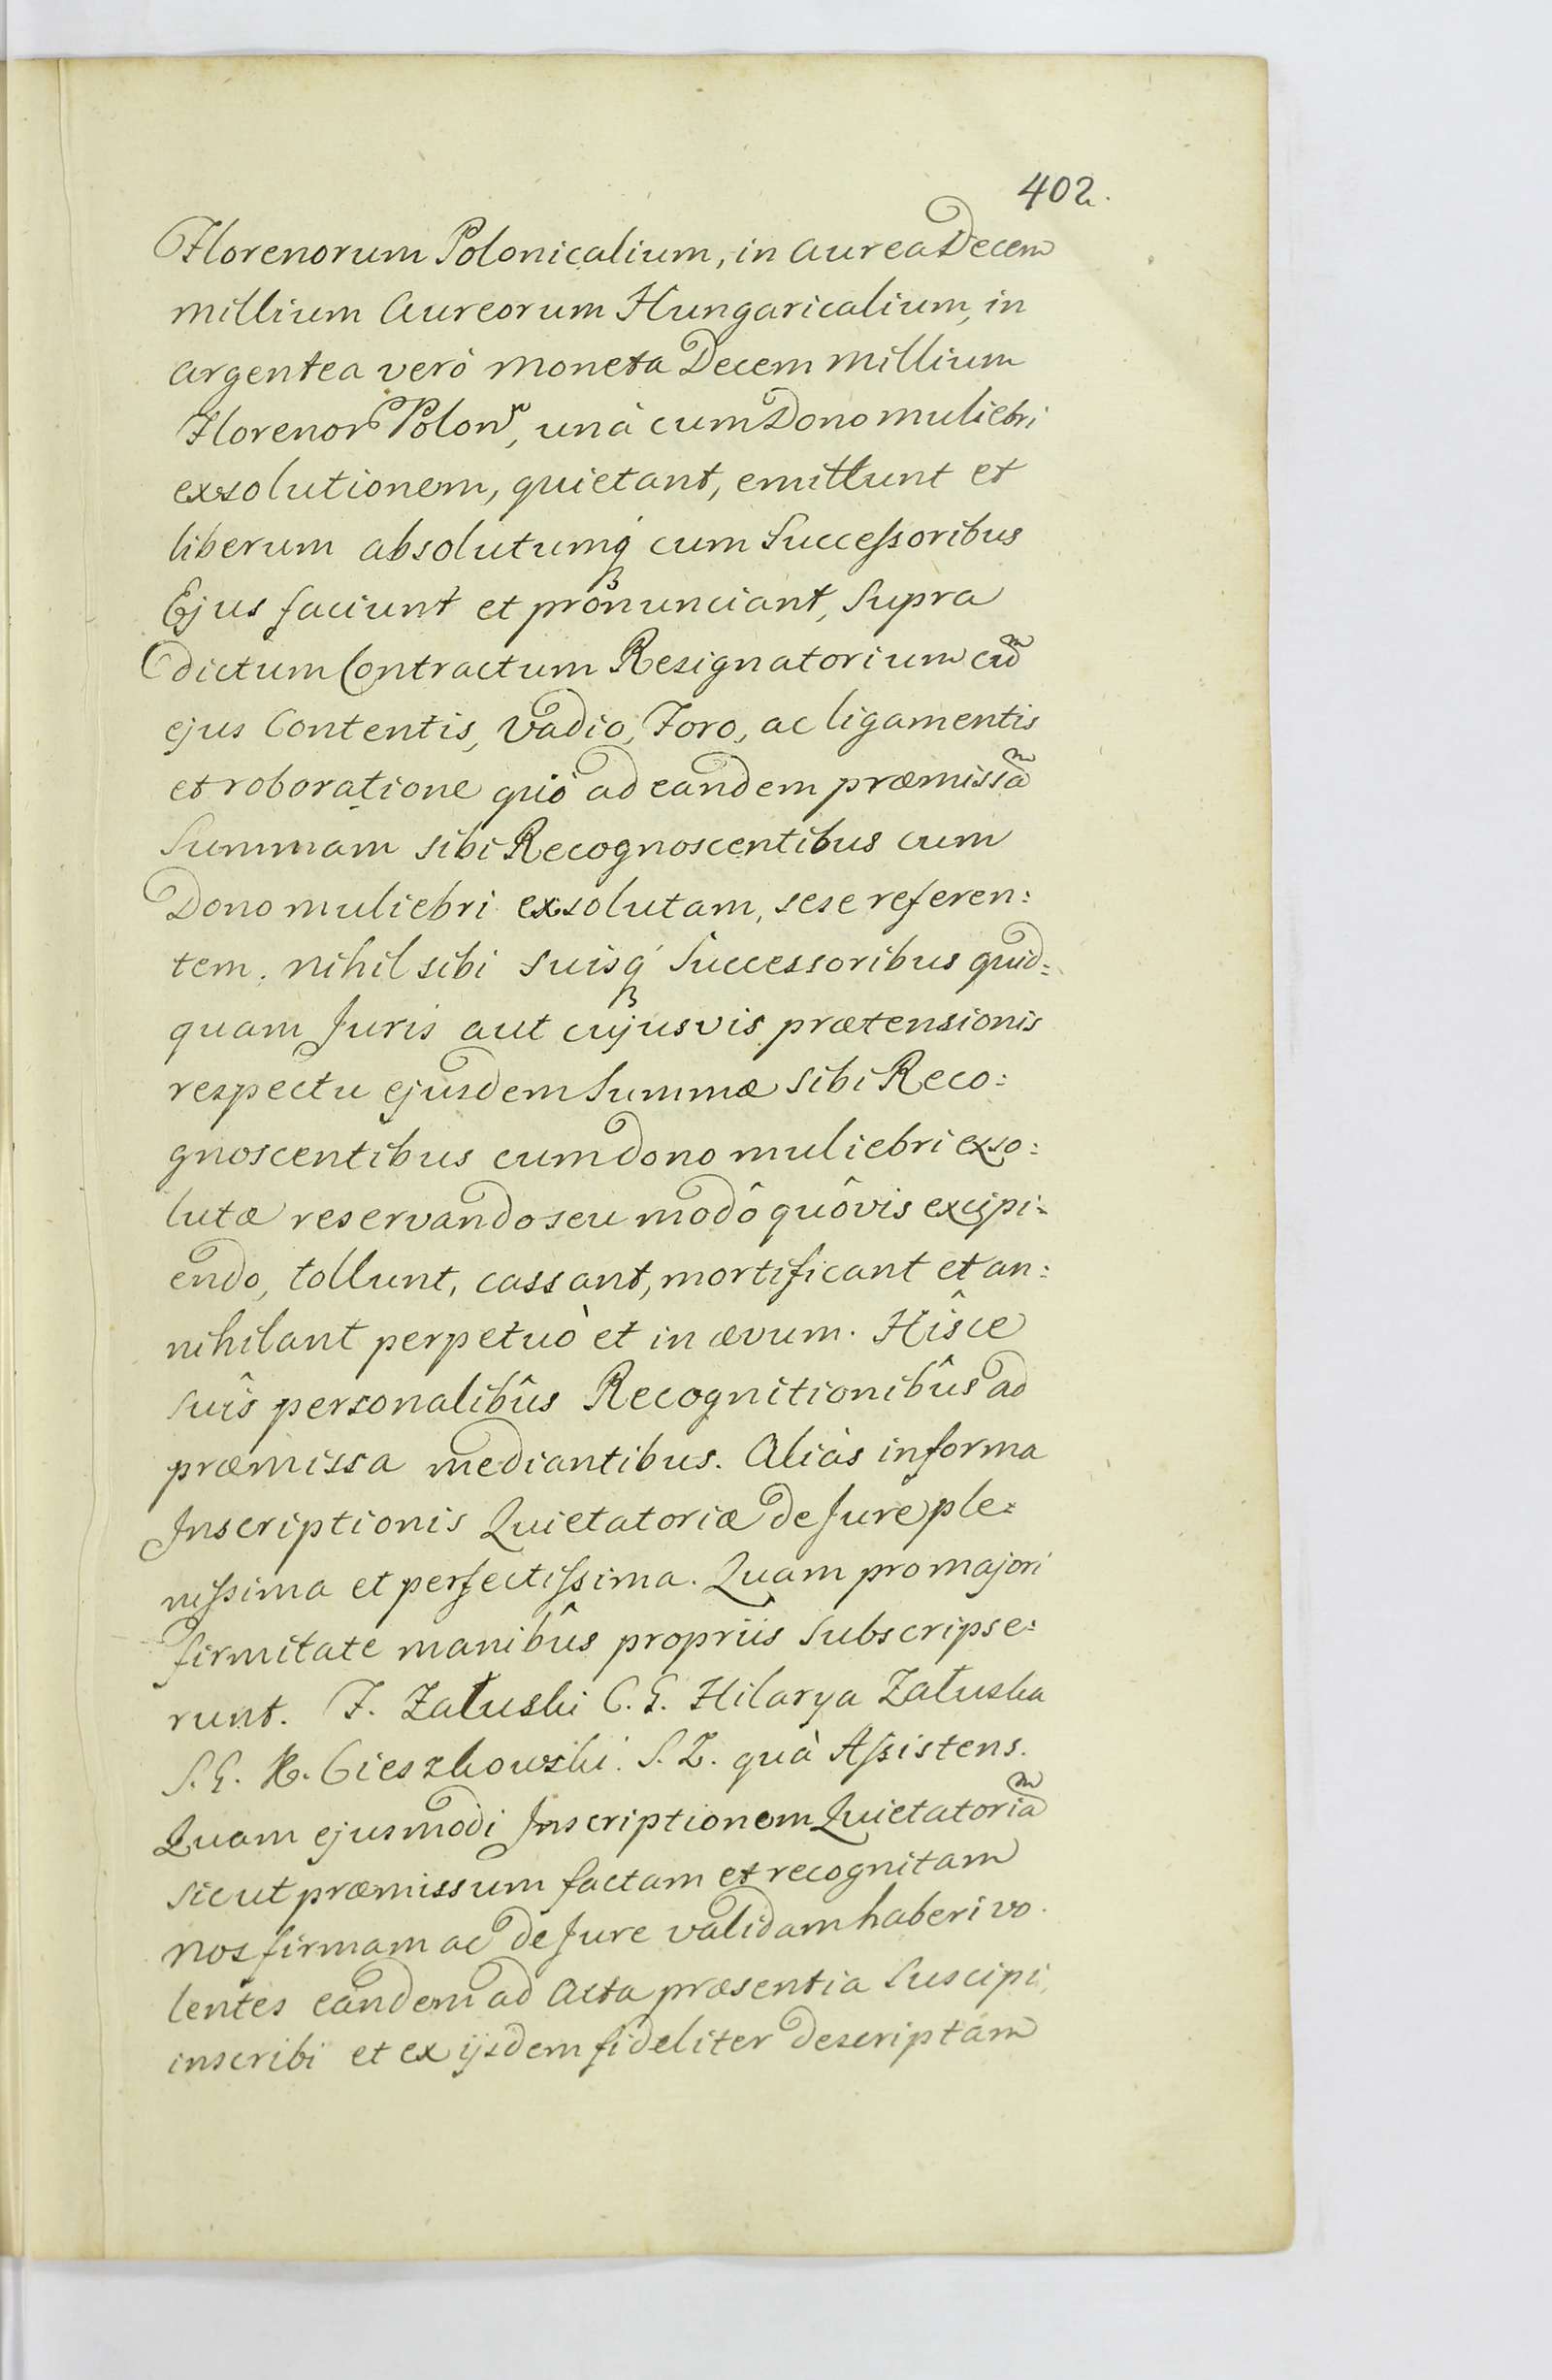 402.
Florenorum Polonicalium, in aurea Decem
millium Aureorum Hungaricalium, in
argentea verò moneta Decem millium
Florenor Polon, unà cum Dono muliebri
exsolutionem, quietant, emittunt et
liberum absolutumq́ cum Succeſsoribus
Ejus faciunt et pronunciant, Supra
dictum Contractum Resignatorium cum
ejus Contentis, Vadio, Foro, ac ligamentis
et roboratione quò ad eandem præmissam
Summam sibi Recognoscentibus cum
Dono muliebri exsolutam, sese referen:
tem. nihil sibi suisq́ Successoribus quid:
quam Juris aut cujusvis prætensionis
respectu ejusdem Summæ sibi Reco:
gnoscentibus cum dono muliebri exso:
lutæ reservando seu modô quôvis excipi:
endo, tollunt, cassant, mortificant et an:
nihilant perpetuò et in ævum. Hîsce
suîs personalibûs Recognitionibûs ad
præmissa mediantibus. Aliàs in forma
Inscriptionis Quietatoriæ de Jure ple:
niſsima et perfectiſsima. Quam pro majori
firmitate manibûs propriis subscripse:
runt. F. Załuski C. G. Hilarya Załuska
S. G. K. Cieszkowski. S. Z. quà Aſsistens.
Quam ejusmodi Inscriptionem Quietatoriam
sicut præmissum factam et recognitam
nos firmam ac de Jure validam haberi vo:
lentes eandem ad Acta præsentia suscipi,
inscribi et ex ijsdem fideliter descriptam